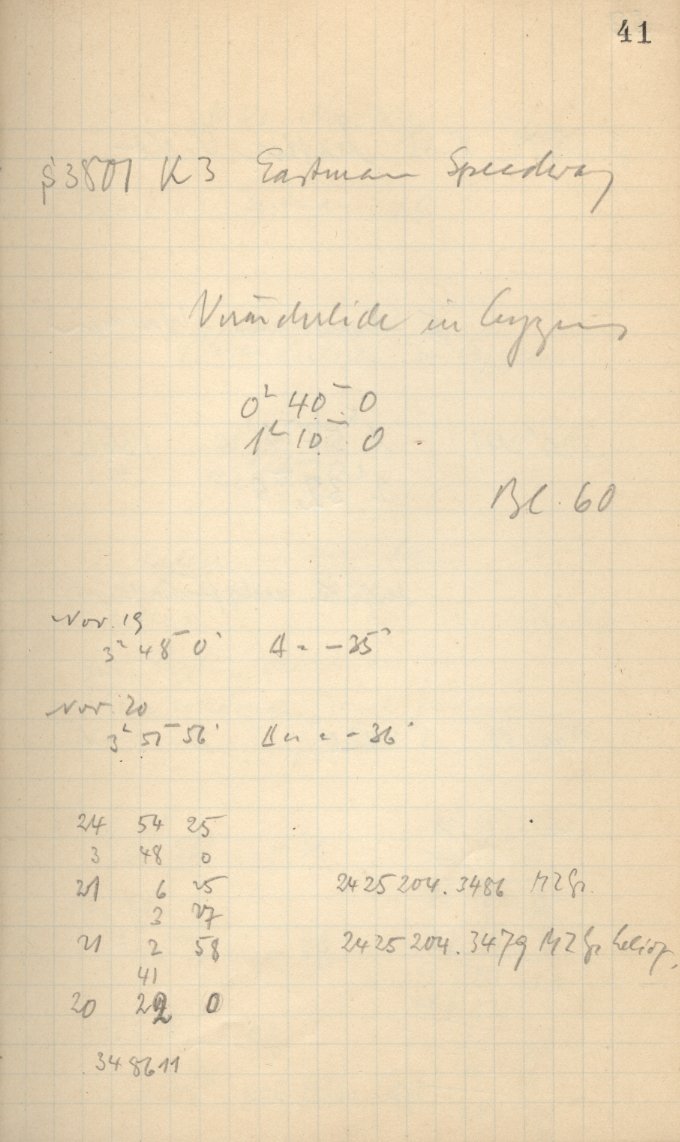 41
S 3801 K3 Eastman Speedway
Veränderliche in Cygnus
0ʰ 40ᵐ 0
1ʰ 10ᵐ 0
Bl. 60
Nov. 19
3ʰ 48ᵐ 0ˢ Δ = -35ˢ
Nov. 20
3ʰ 51ᵐ 56ˢ Δu = -36ˢ
24 54 25
3 48 0
21 6 25
3 27
21 2 58
41
20 22 0
2425204.3486 MZGr.
2425204.3479 MZGr. helioz.
.348611